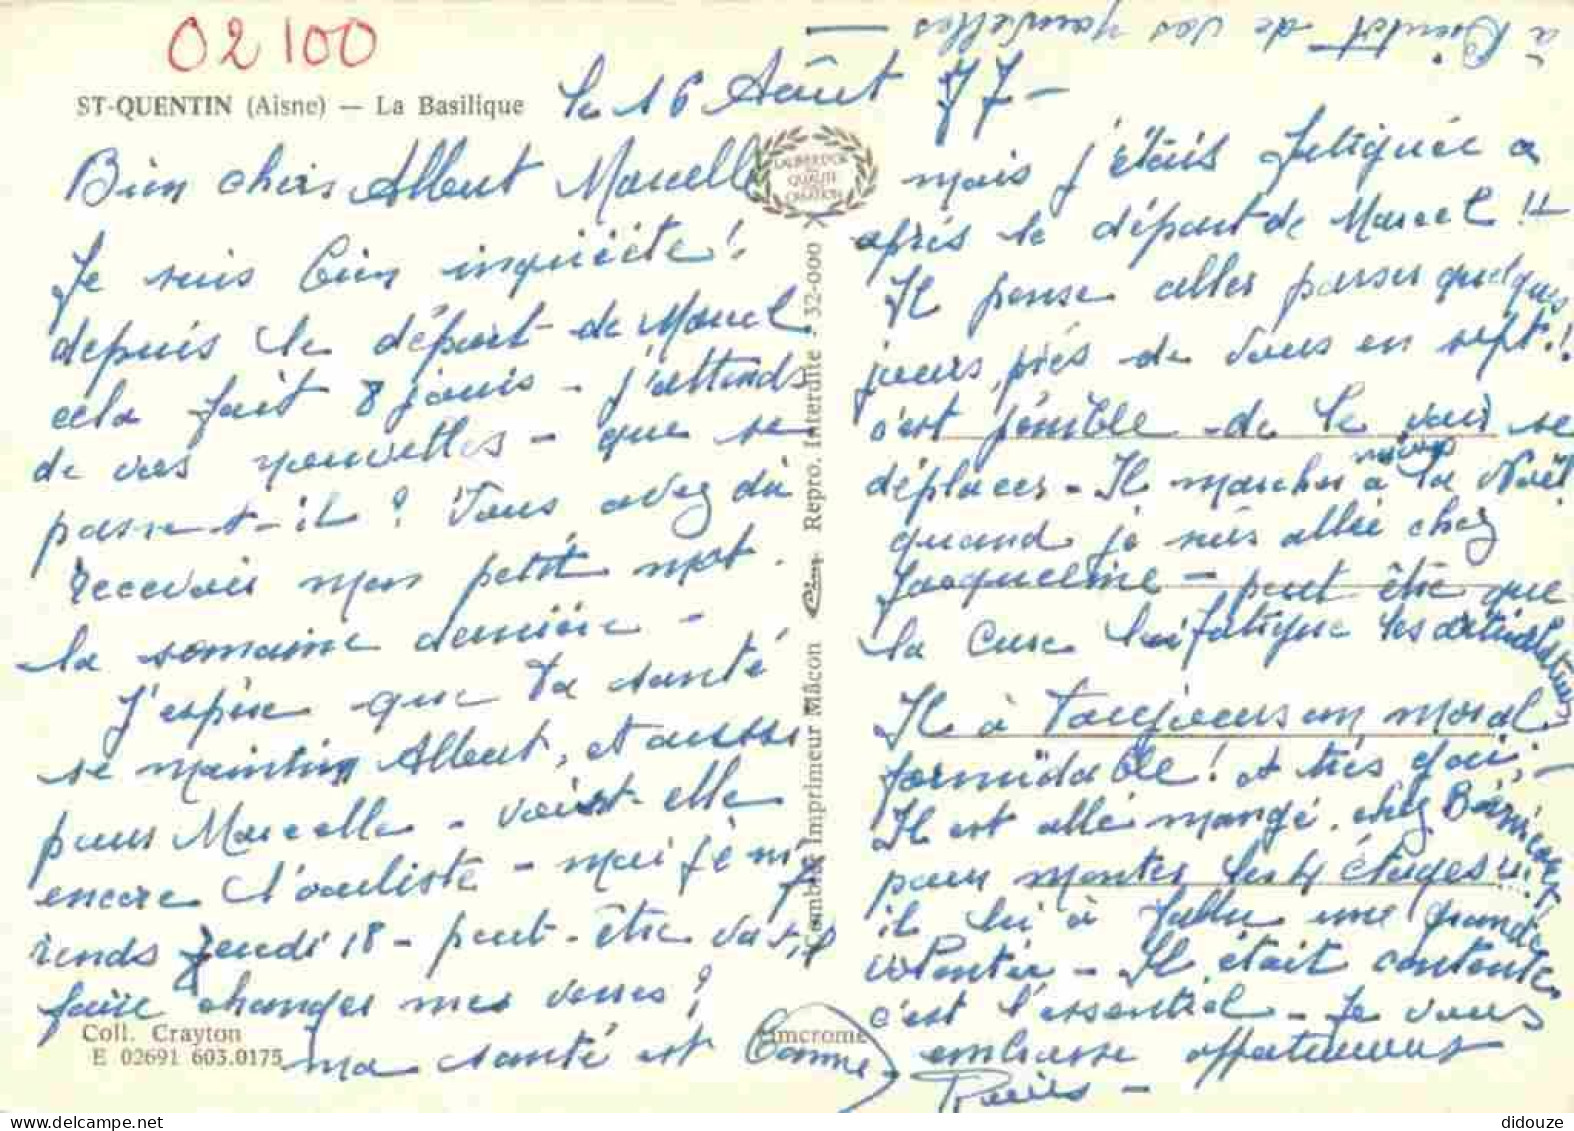 02100
ST-QUENTIN (Aisne) — La Basilique
le 16 Août 77 -
Bien chers Albert Marcelle
Je suis bien inquiète !
depuis le départ de Marcel
cela fait 8 jours - j'attends
de vos nouvelles - que se
passe-t-il ? Vous avez dû
recevoir mon petit mot.
la semaine dernière -
J'espère que ta santé
se maintien Albert, et aussi
pour Marcelle - voist-elle
encore l'oculiste - moi je m'y
rends Jeudi 18 - peut-être va-t-il
faire changer mes verres ?
ma santé est bonne -
Coll. Crayton
E 02691 603.0175
LABEL
QUALITÉ
CRÉATION
Combier Imprimeur Mâcon Cim Repro. Interdite - 32-000
Cimcrome
mais j'étais fatiguée
après le départ de Marcel !!
Il pense aller passer quelques
jours, près de vous en sept. !
c'est pénible de le voir se
déplacer - Il marchait mieux à la Noël
quand je suis allée chez
Jacqueline - peut être que
la cure lui fatigue les articulations
Il à toujours un moral
formidable ! et très gai, -
Il est allé mangé chez Bérnice
pour monter les 4 étages !!!
il lui à fallu une grande
volonter - Il était contente
c'est l'essentiel - Je vous
embrasse affectueuses
à Bientôt de vos nouvelles —